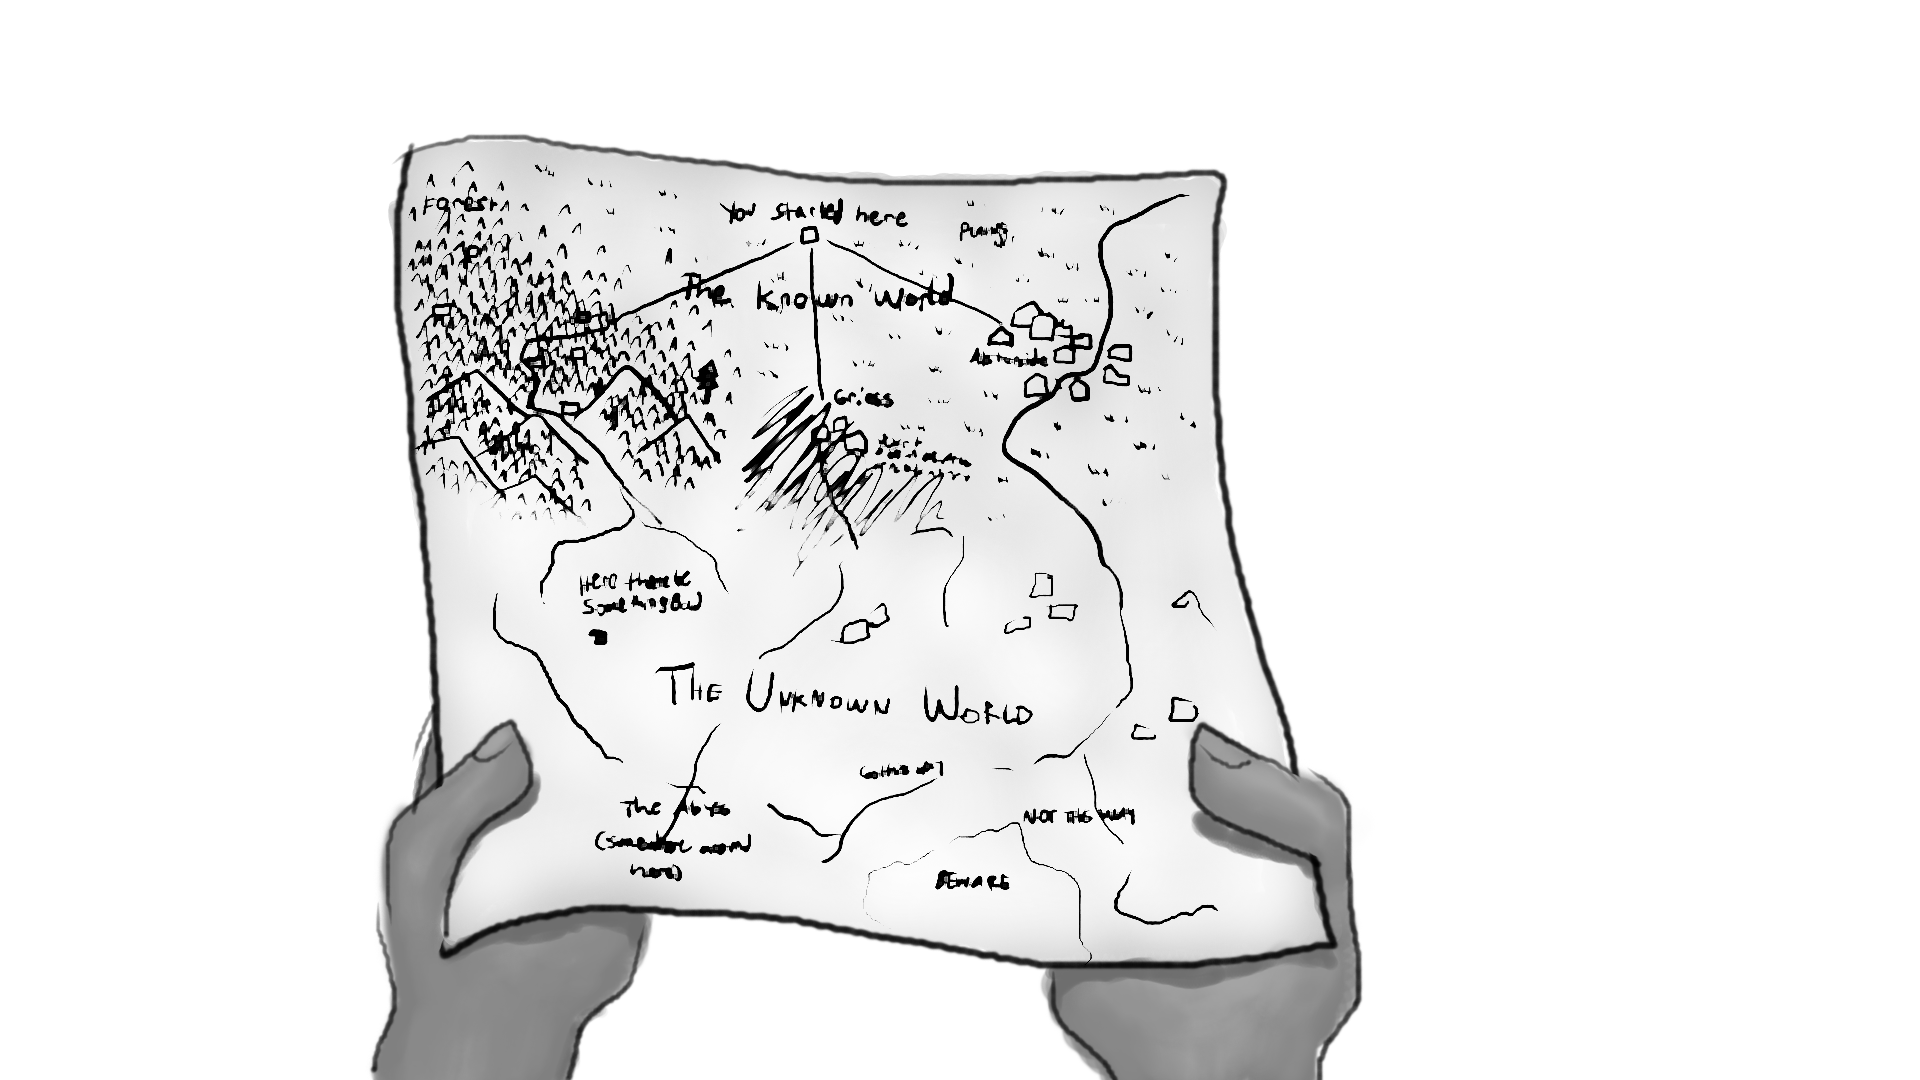 Forest
You started here
Plains
The Known World
Griess
Here there be
Something Bad
THE UNKNOWN WORLD
Go this way
The Abyss
(somewhere around
here)
NOT THIS WAY
BEWARE